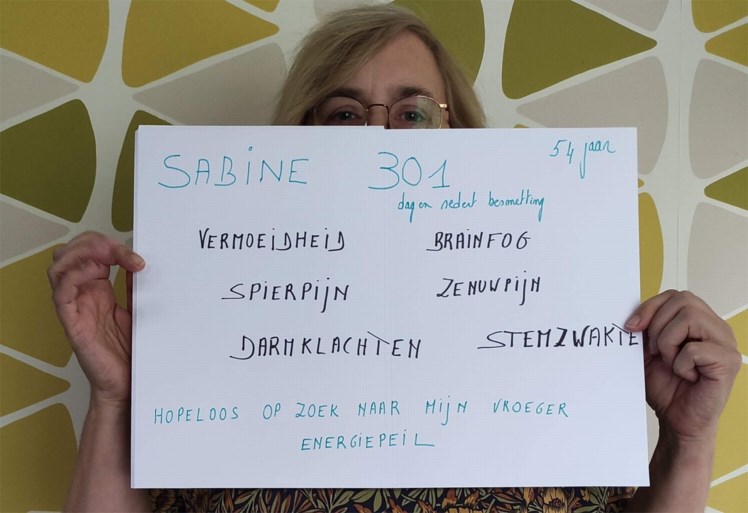 SABINE 301 54 jaar
dagen sedert besmetting
VERMOEIDHEID BRAINFOG
SPIERPIJN ZENUWPIJN
DARMKLACHTEN STEMZWAKTE
HOPELOOS OP ZOEK NAAR MIJN VROEGER
ENERGIEPEIL